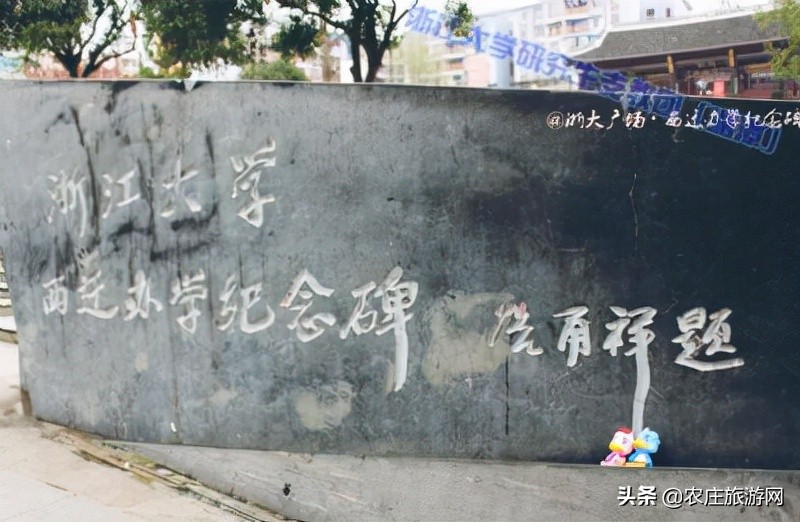 浙江大学研究生支教团
浙大广场·西迁办学纪念碑
浙江大学
西迁办学纪念碑 路甬祥题
头条 @农庄旅游网